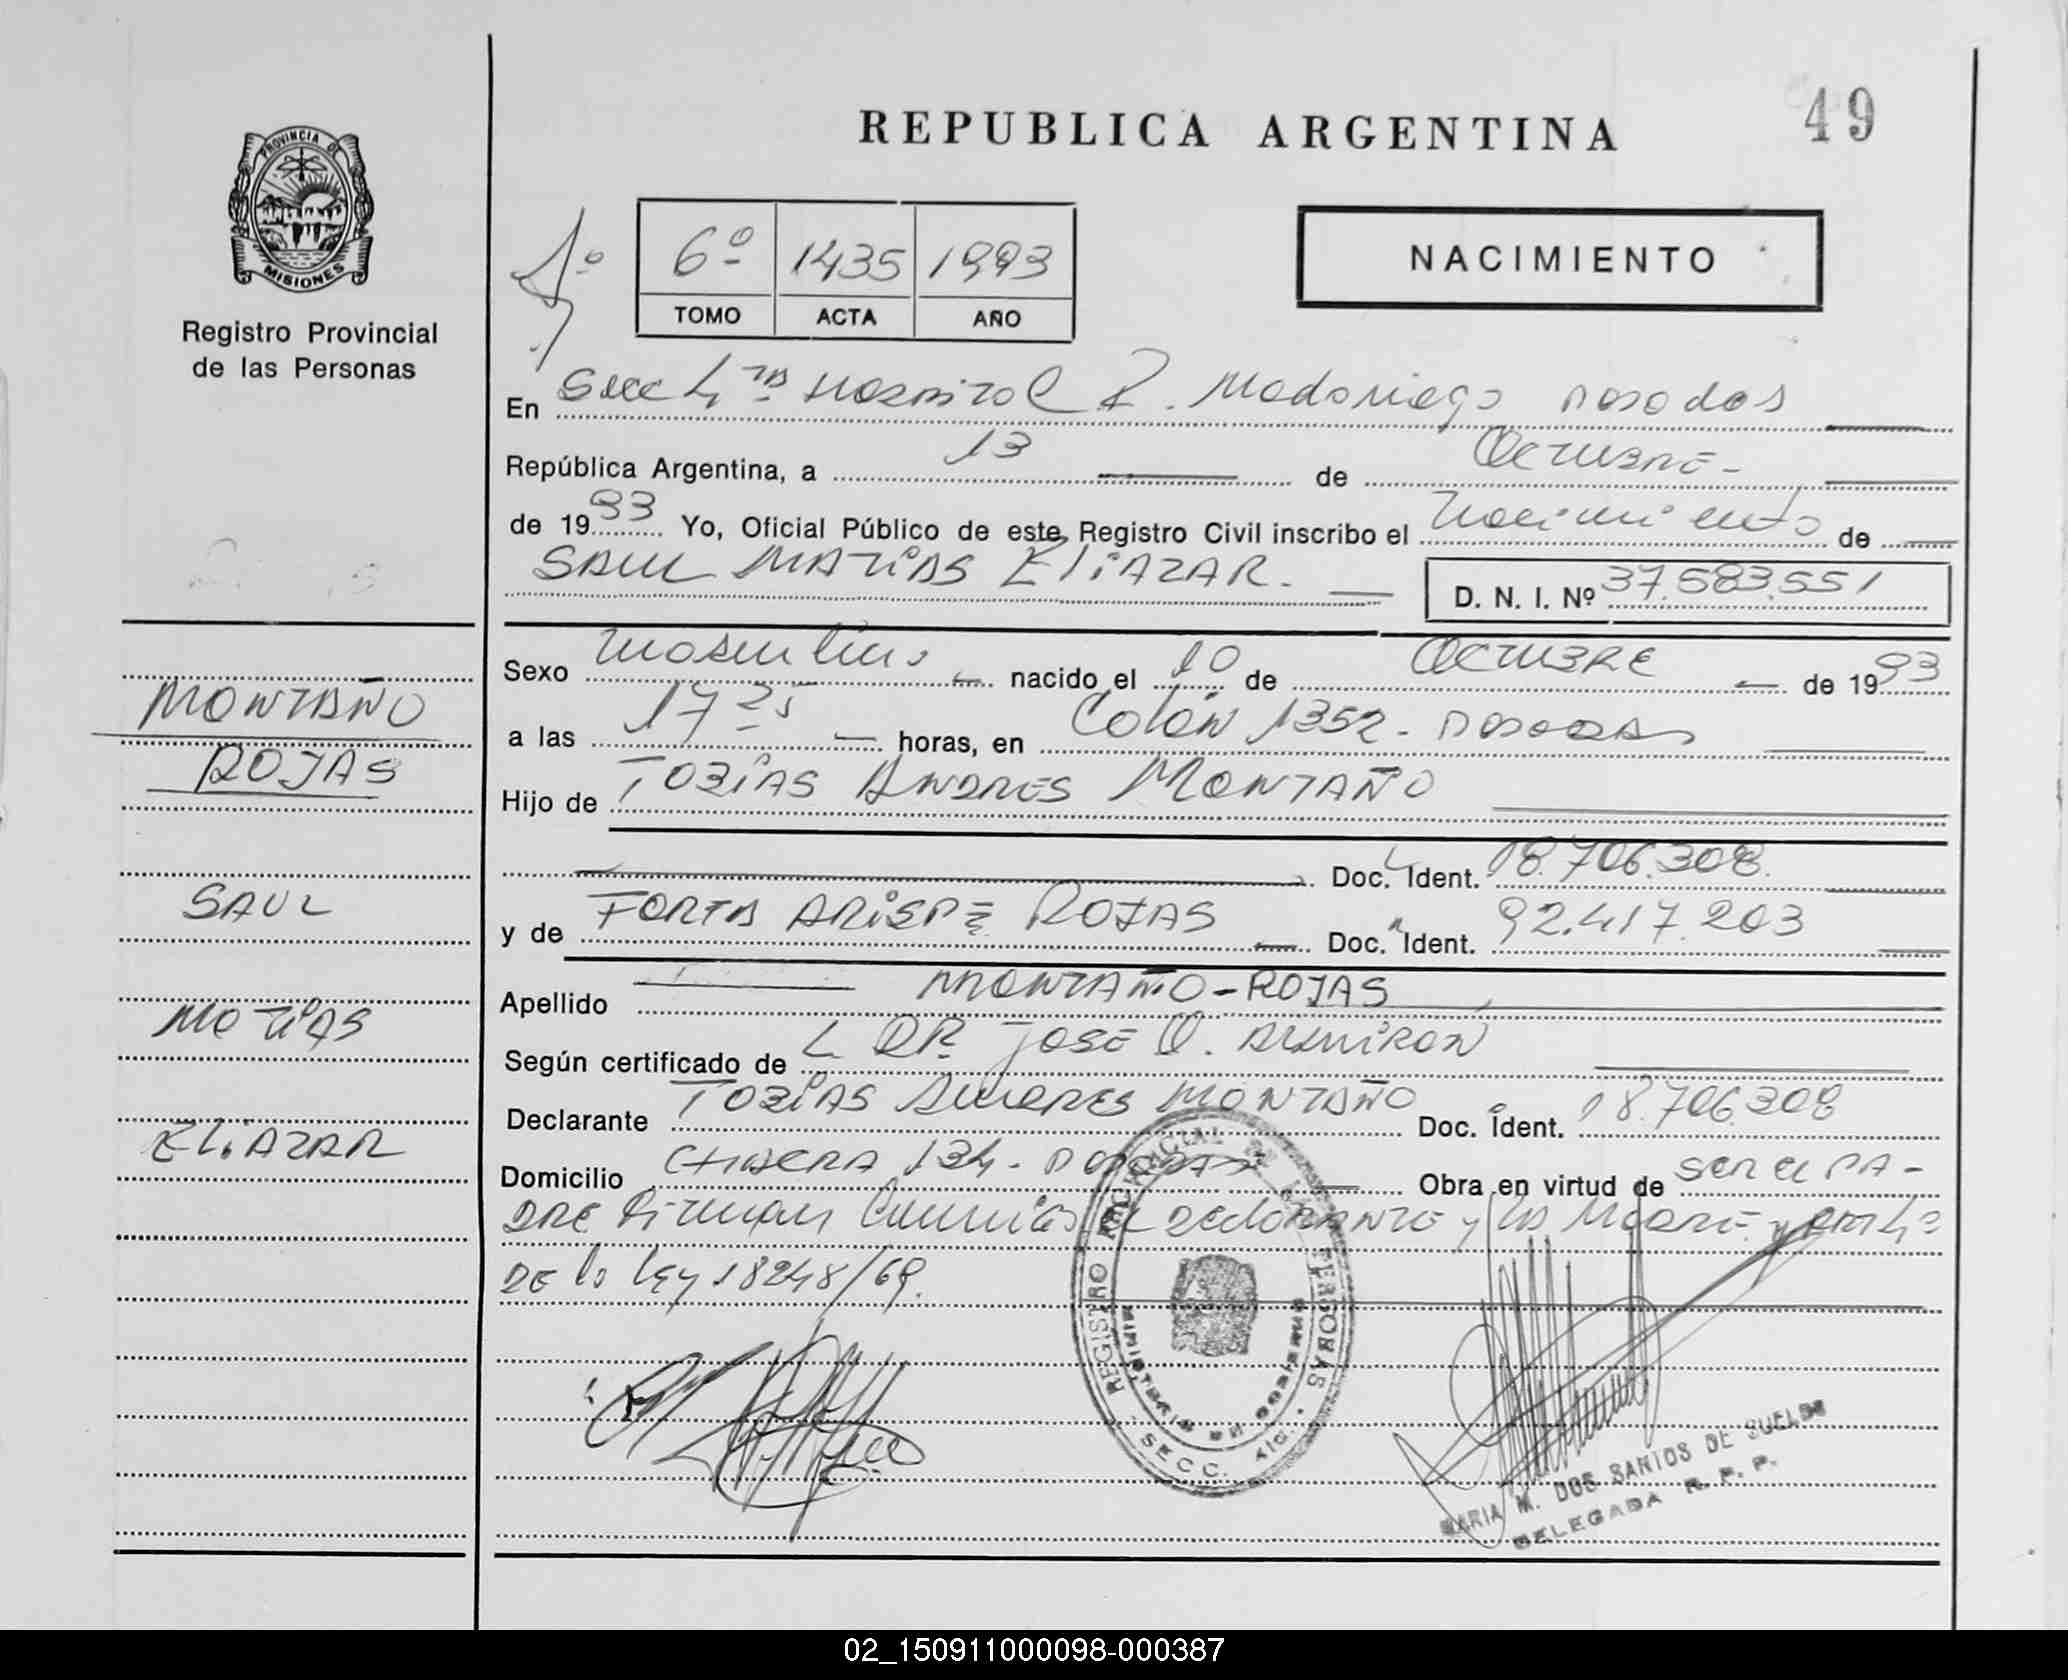 REPUBLICA ARGENTINA
49
PROVINCIA DE
MISIONES
Registro Provincial
de las Personas
1º
6º 1435 1993
TOMO ACTA AÑO
NACIMIENTO
En Secc 4ta Hospital R. Madariaga Posadas
República Argentina, a 13 de Octubre
de 1993 Yo, Oficial Público de este Registro Civil inscribo el Nacimiento de
SAUL MATIAS ELIAZAR.
D. N. I. Nº 37.583.551
Sexo Masculino nacido el 10 de OCTUBRE de 1993
a las 17 25 horas, en Colón 1352 - POSADAS
Hijo de TOBIAS ANDRES MONTAÑO
Doc. Ident. 18.706.308.
y de FORTA ARISPE ROJAS Doc. Ident. 92.417.203
Apellido MONTAÑO-ROJAS
Según certificado de DR. JOSE ALMIRON
Declarante TOBIAS ANDRES MONTAÑO Doc. Ident. 18.706.308
Domicilio 134 - POSADAS Obra en virtud de SER el PA-
DRE Firman el declarante y la MADRE y
DE la ley 18248/69.
MONTAÑO
ROJAS
SAUL
MATIAS
ELIAZAR
REGISTRO PROVINCIAL DE LAS PERSONAS
MINISTERIO DE GOBIERNO
SECC. 4ta.
MARIA M. DOS SANTOS DE SUELDO
DELEGADA R. P. P.
02_150911000098-000387